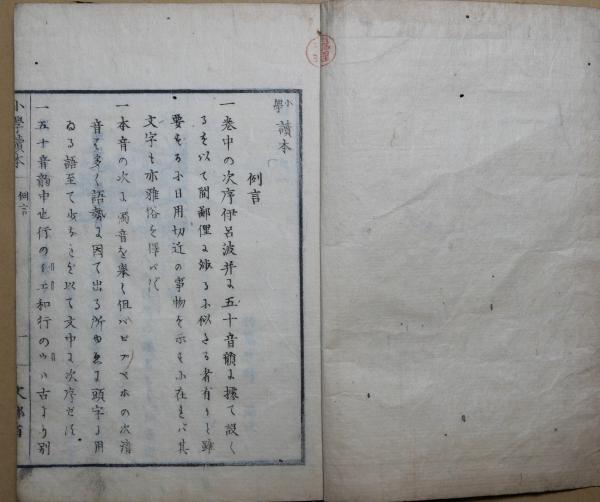 小學讀本
例言
一卷中の次序伊呂波并に五十音韻に據て設く
るを以て間鄙俚に渉るに似たる者有りと雖
要するに日用切近の事物を示すに在れバ其
文字も亦雅俗を擇バず
一本音の次に濁音を擧く但バビブベボの次清
音は多く語勢に因て出る所
頭字に用
ゐる語至て少なきを以て文中に次序せず
一五十音韻中也行の
和行の
古より別
小學讀本
例言
一
文部省